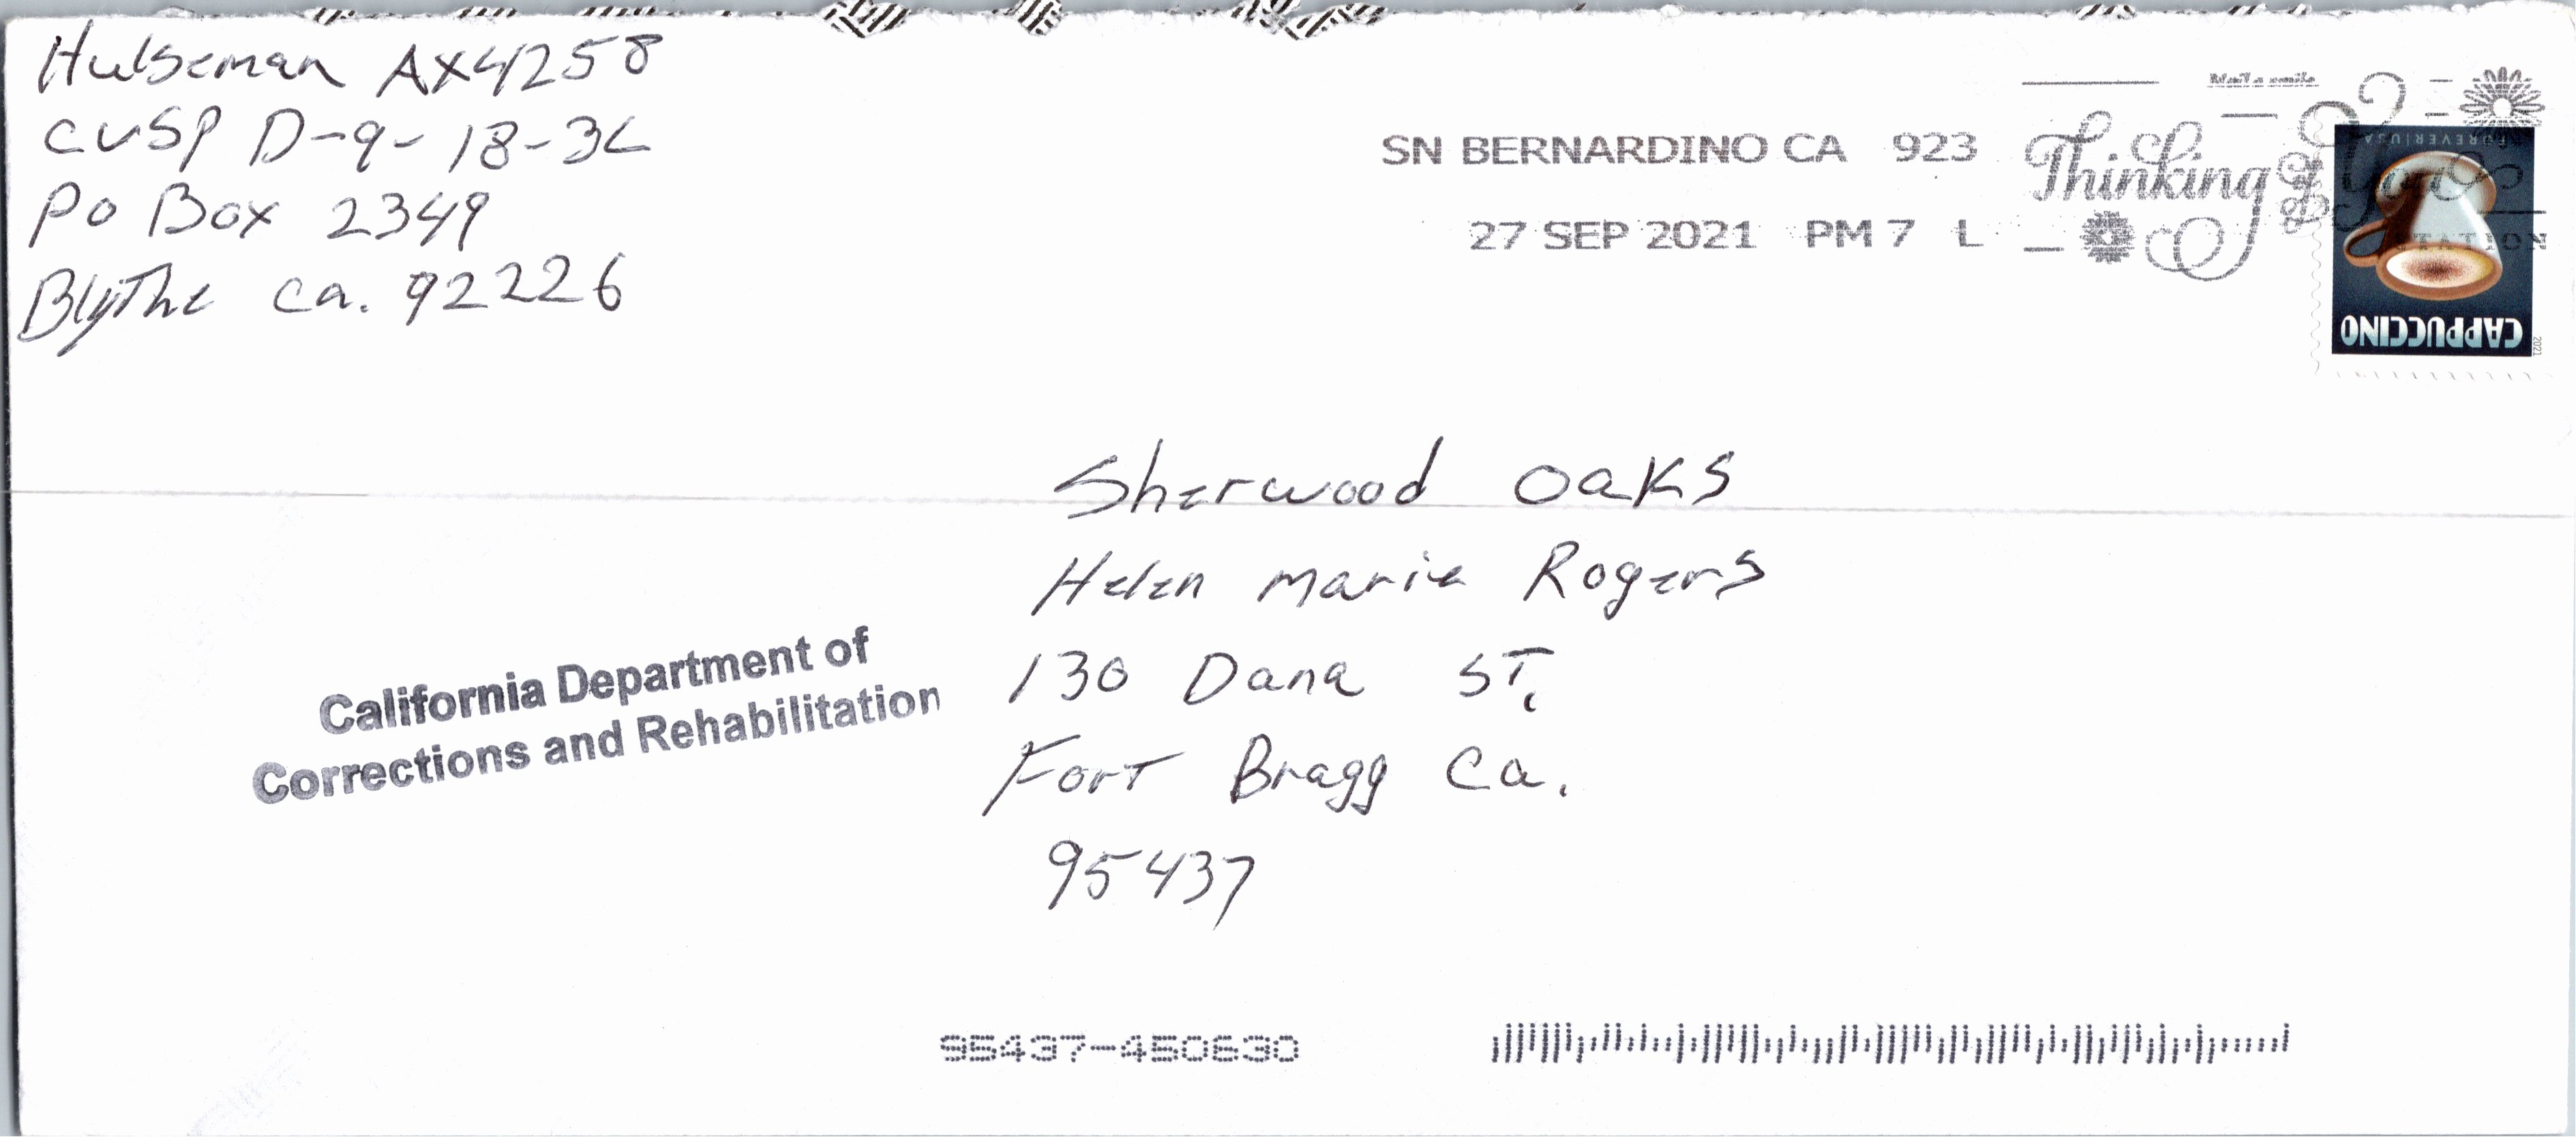 Hulseman AX4258
CVSP D-9-18-3L
Po Box 2349
Blythe ca. 92226
Mail a smile
SN BERNARDINO CA 923
27 SEP 2021 PM 7 L
Thinking of You
FOREVER USA
CAPPUCCINO
2021
Sherwood Oaks
Helen Marie Rogers
130 Dana ST.
Fort Bragg Ca.
95437
California Department of
Corrections and Rehabilitation
95437-450630